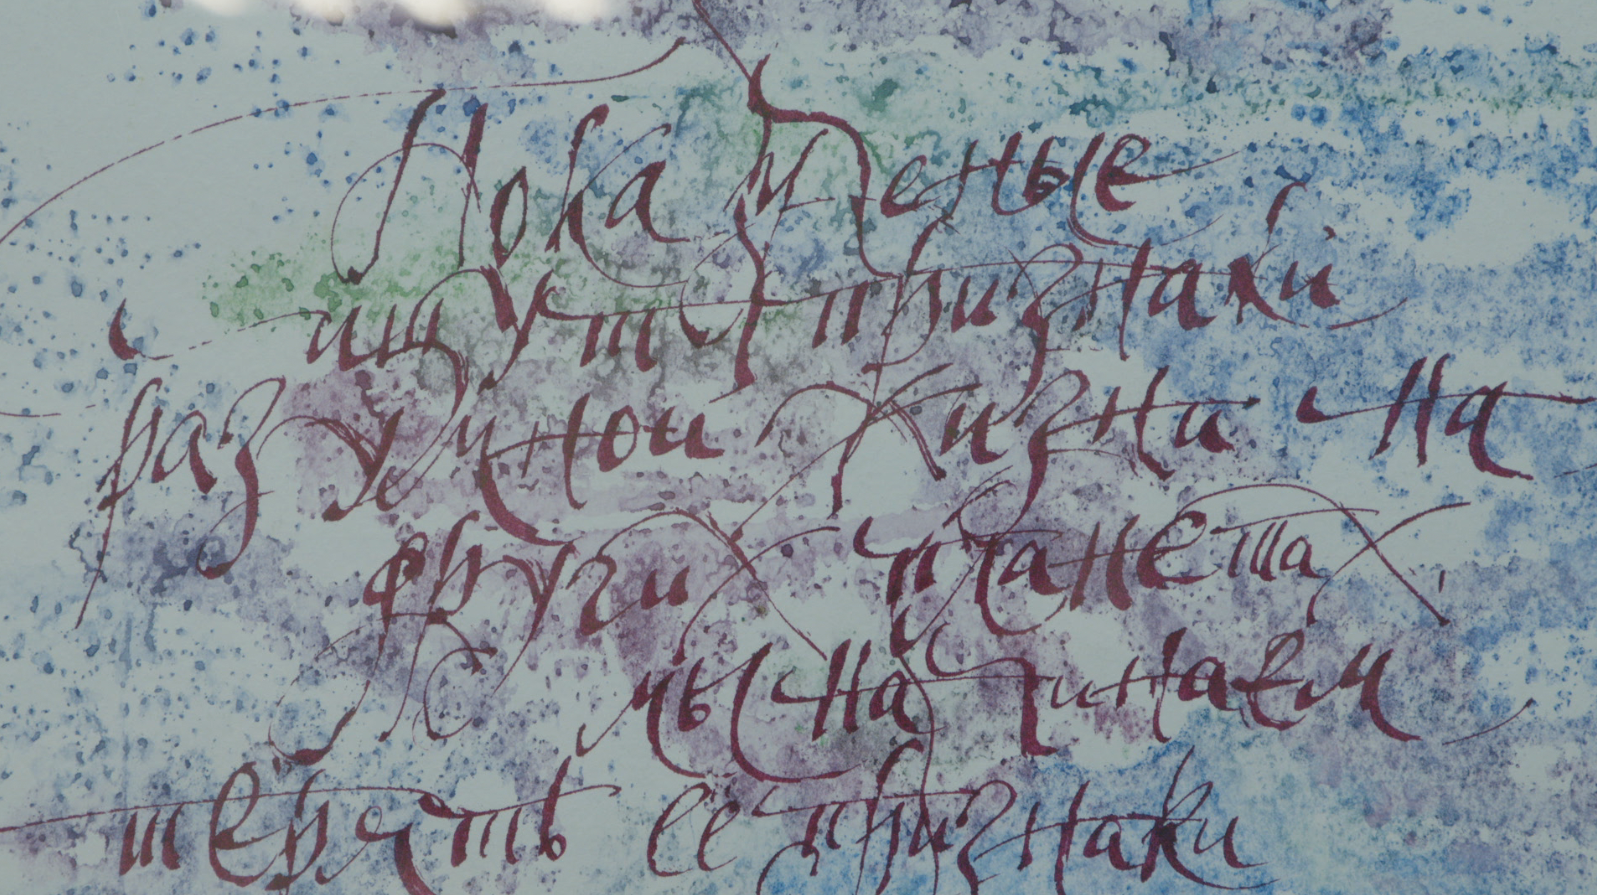 Пока ученые
ищут признаки
разумной жизни на
других планетах,
мы начинаем
терять ее признаки